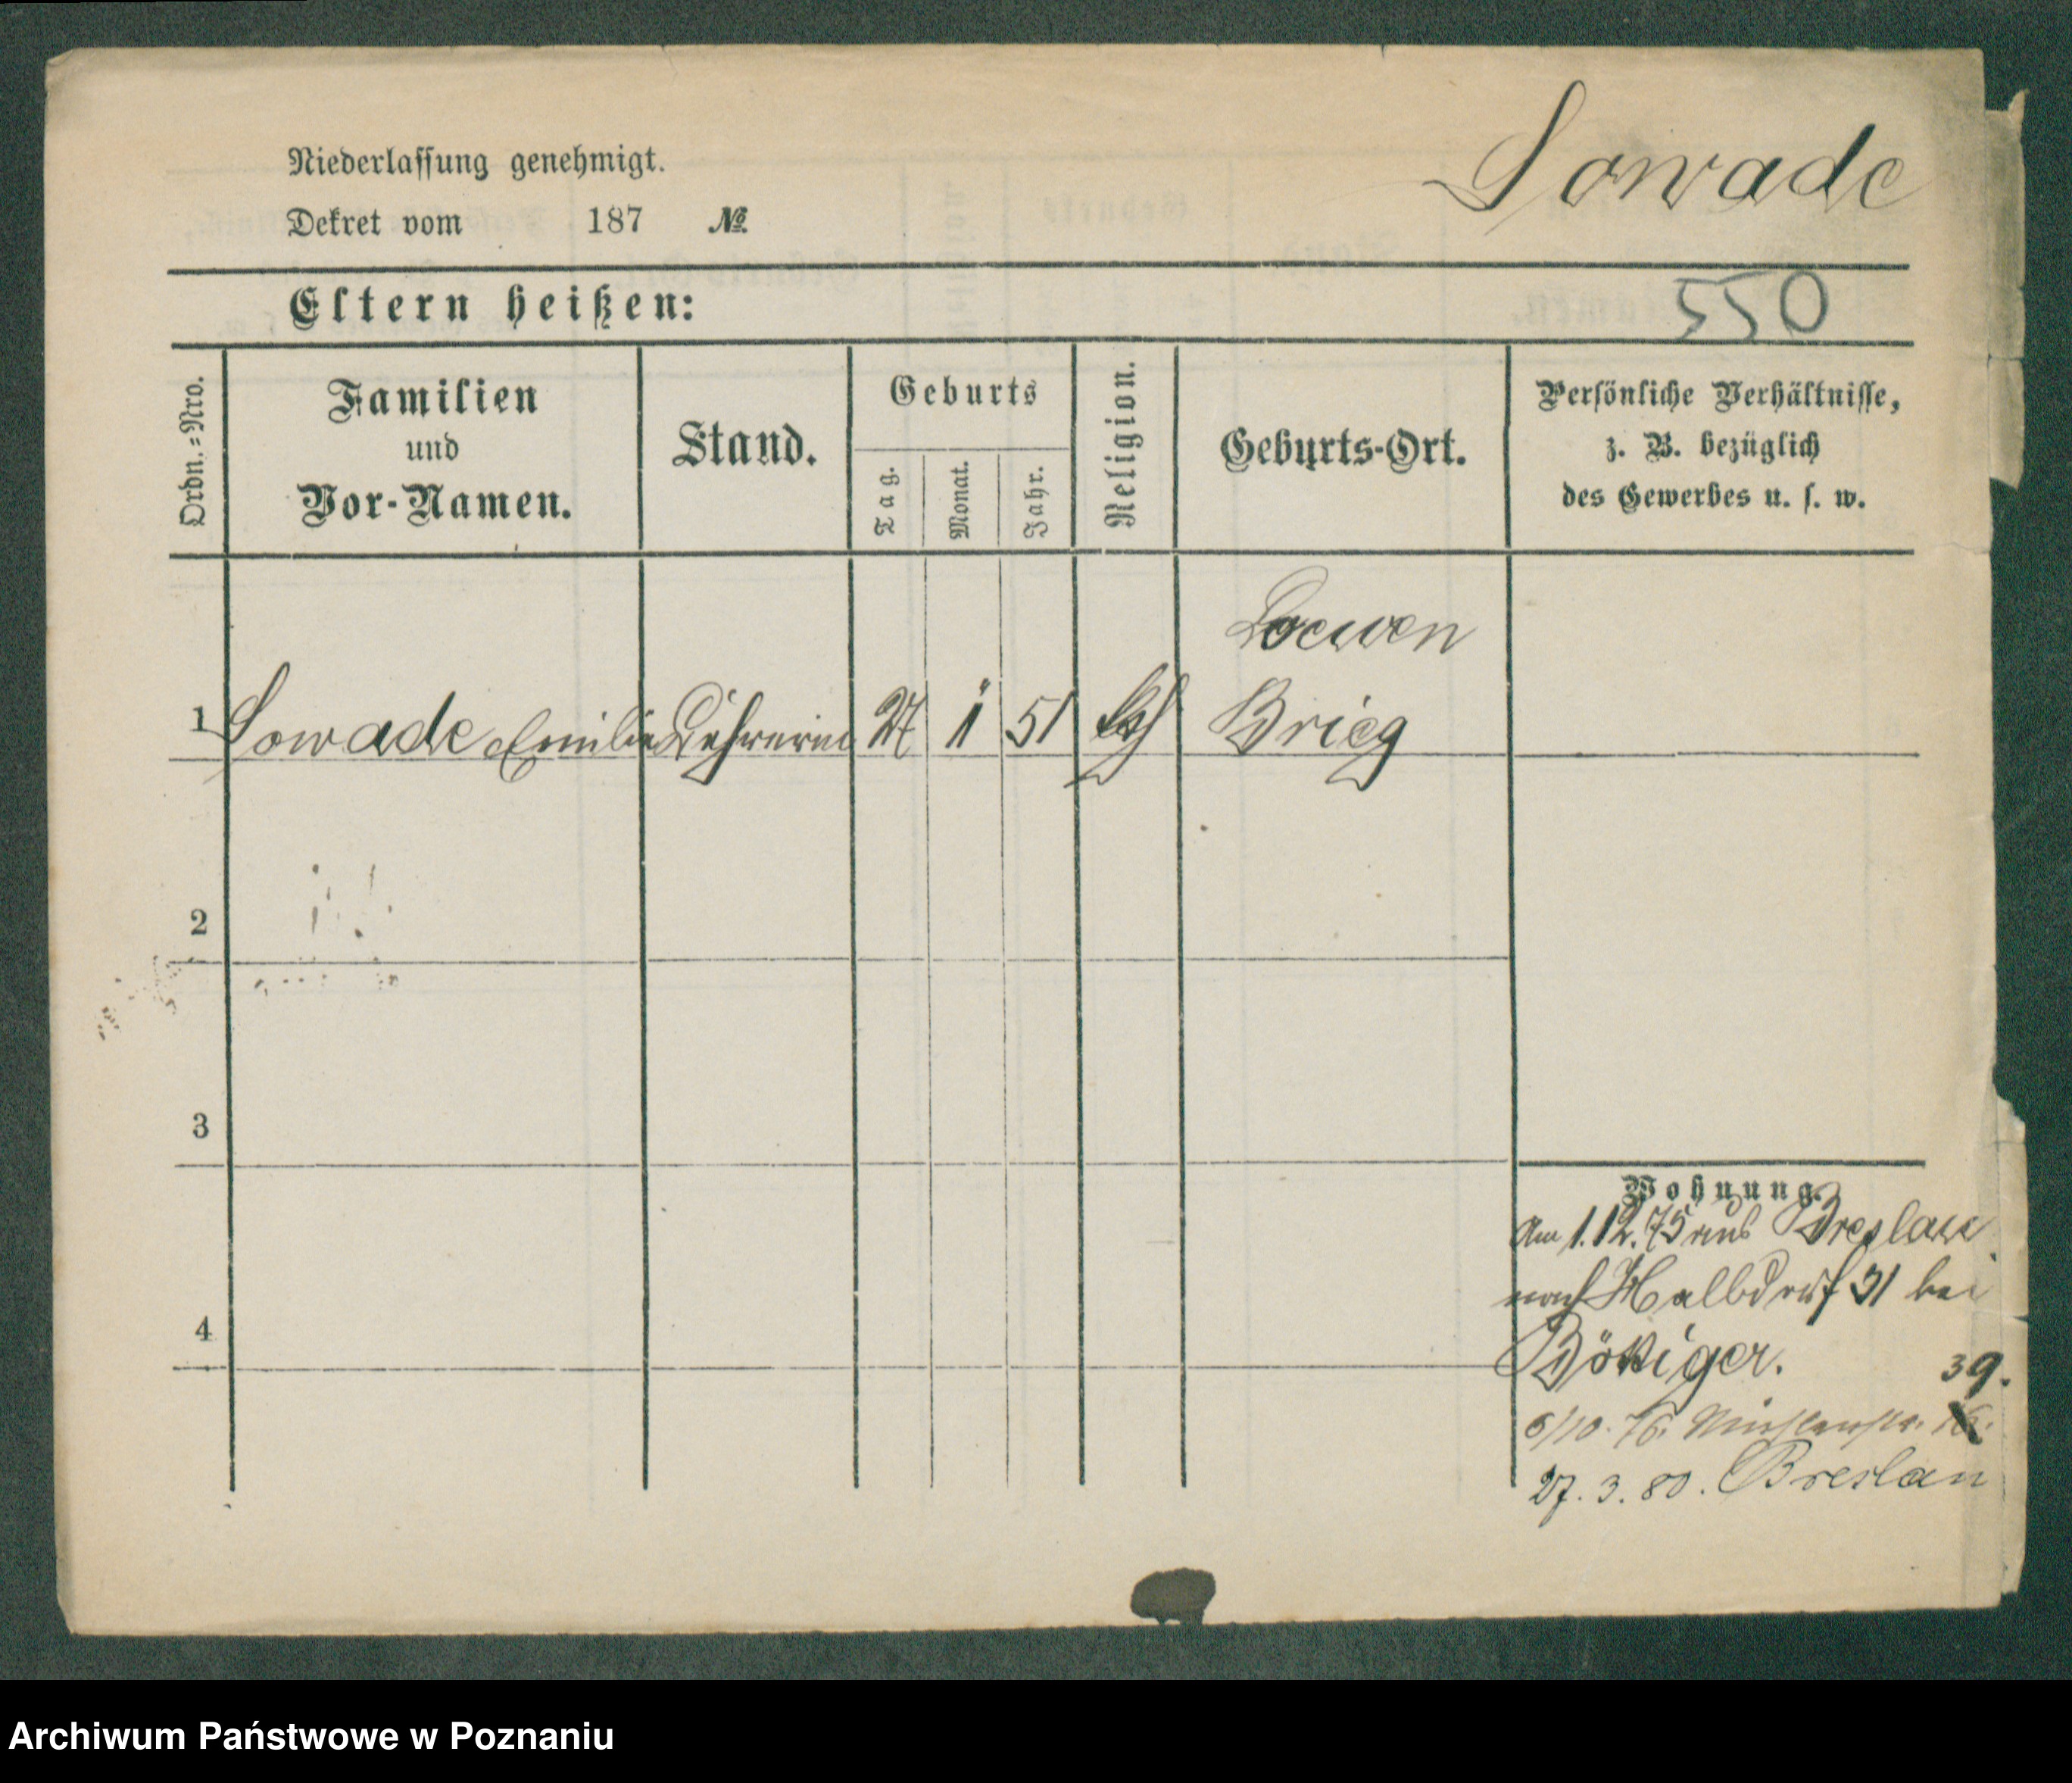 Sowade
Niederlassung genehmigt.
Dekret vom 187 №
Eltern heißen:
550
Ordn.=Nro.
Familien
und
Vor-Namen.
Stand.
Geburts
Tag.
Monat.
Jahr.
Religion.
Geburts-Ort.
Persönliche Verhältnisse,
z. B. bezüglich
des Gewerbes u. s. w.
Loewen
1 Sowade Emilie Lehrerin 27 1 51 Brieg
2
3
4
Wohnung.
Am 1.12.75 aus Breslau
nach Halbdorf 31 bei
Böttiger.
39.
6/10. 76. Mühlenstr.
27. 3. 80. Breslau
Archiwum Państwowe w Poznaniu